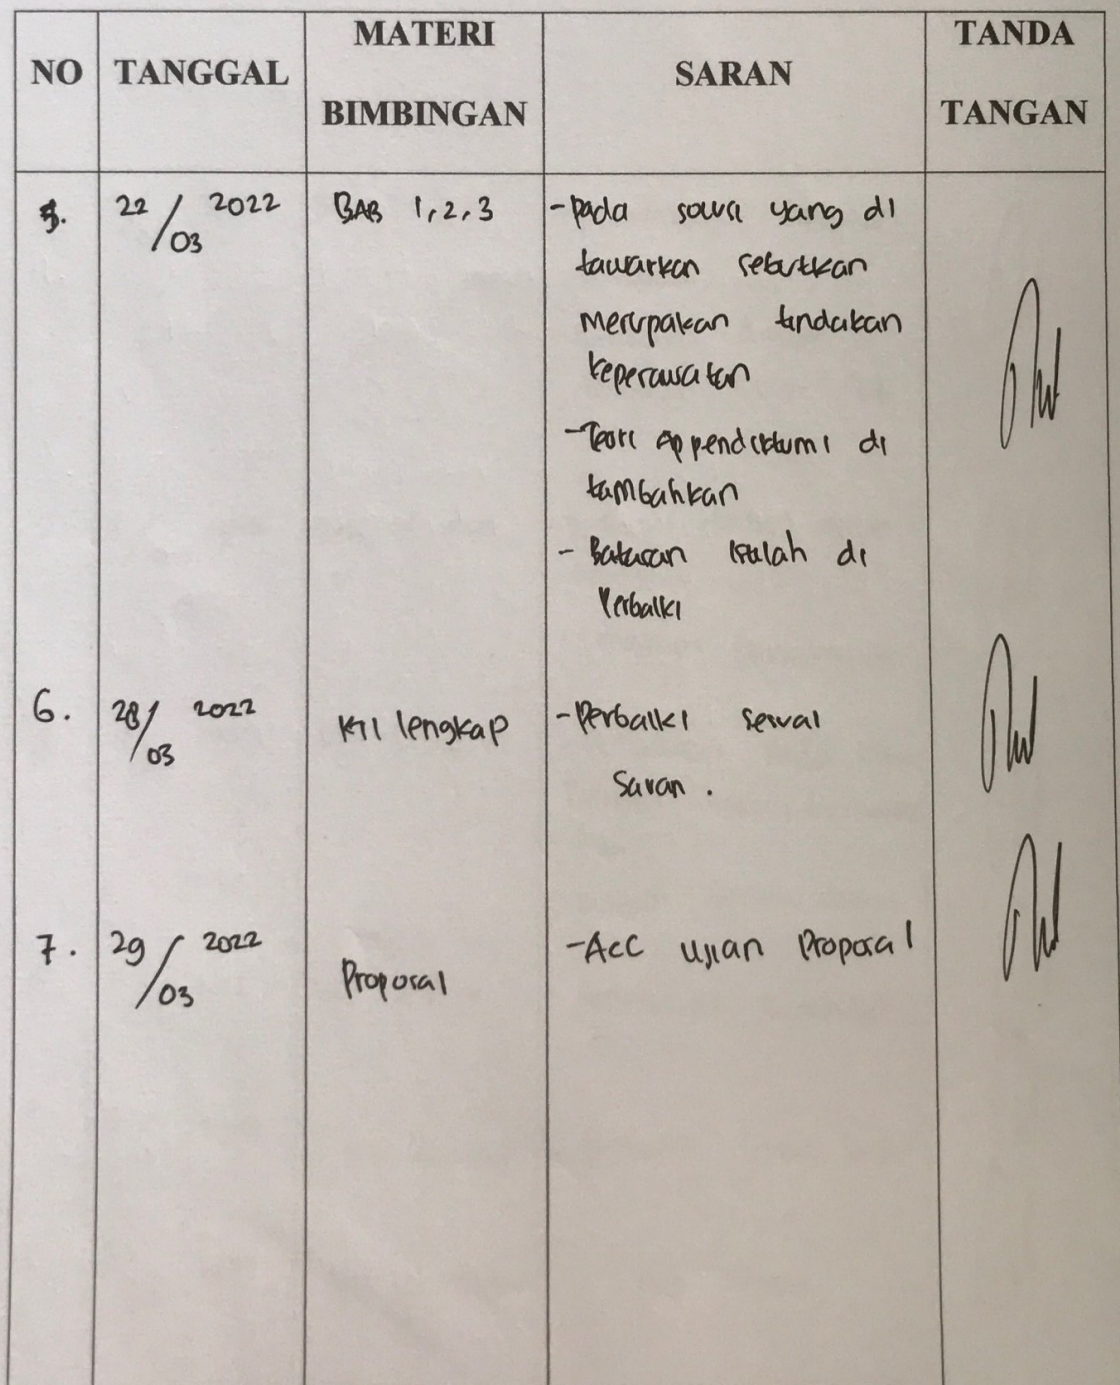 NO TANGGAL MATERI BIMBINGAN SARAN TANDA TANGAN
5. 22/03 2022 BAB 1,2,3 - pada solusi yang di
tawarkan sebutkan
merupakan tindakan
keperawatan
- Teori Appendiktumi di
tambahkan
- Batasan istilah di
Perbaiki
6. 28/03 2022 KTI lengkap - Perbaiki sesuai
Saran .
7. 29/03 2022 Proposal - ACC ujian Proposal